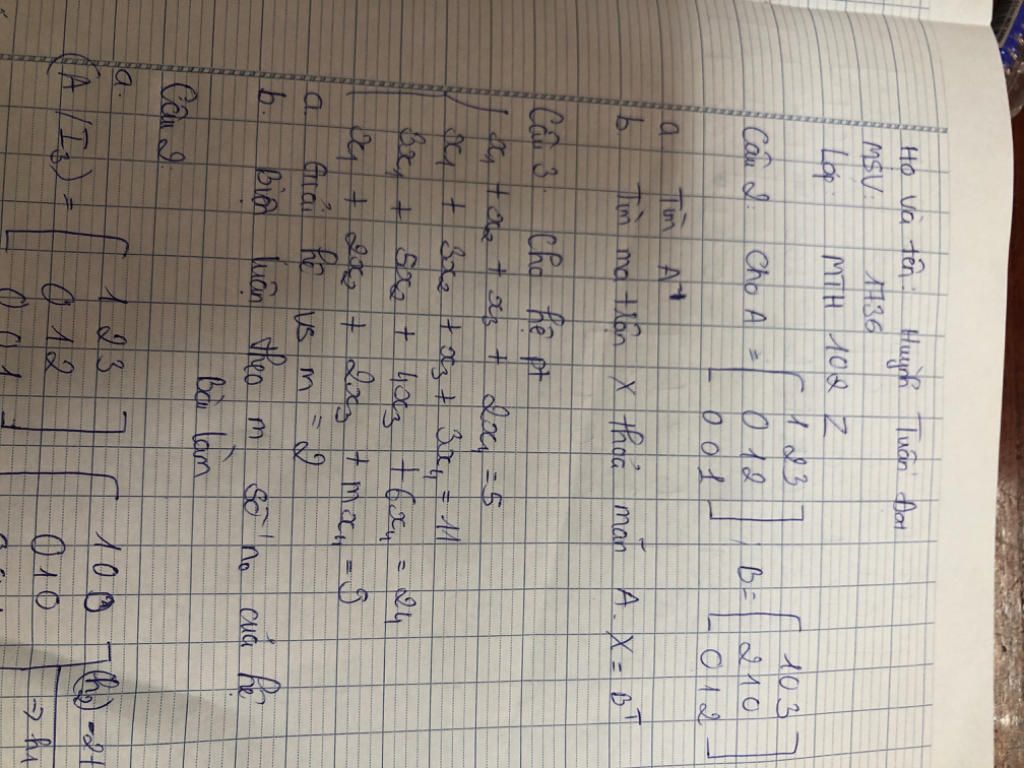 Họ và tên: Huỳnh Tuấn Đạt
MSV: 1736
Lớp: MTH 102 Z
Câu 2: Cho A = [ 1 2 3 ; B = [ 1 0 3
0 1 2 2 1 0
0 0 1 ] 0 1 2 ]
a Tìm A⁻¹
b Tìm ma trận X thoả mãn A.X = Bᵀ
Câu 3: Cho hệ pt
x₁ + x₂ + x₃ + 2x₄ = 5
x₁ + 3x₂ + x₃ + 3x₄ = 11
3x₁ + 5x₂ + 4x₃ + 6x₄ = 24
x₁ + 2x₂ + 2x₃ + mx₄ = 9
a. Giải hệ vs m = 2
b. Biện luận theo m số nₒ của hệ
Bài làm
Câu 2:
a.
(A/I₃) = [ 1 2 3 1 0 0
0 1 2 0 1 0
0 0 1 ]